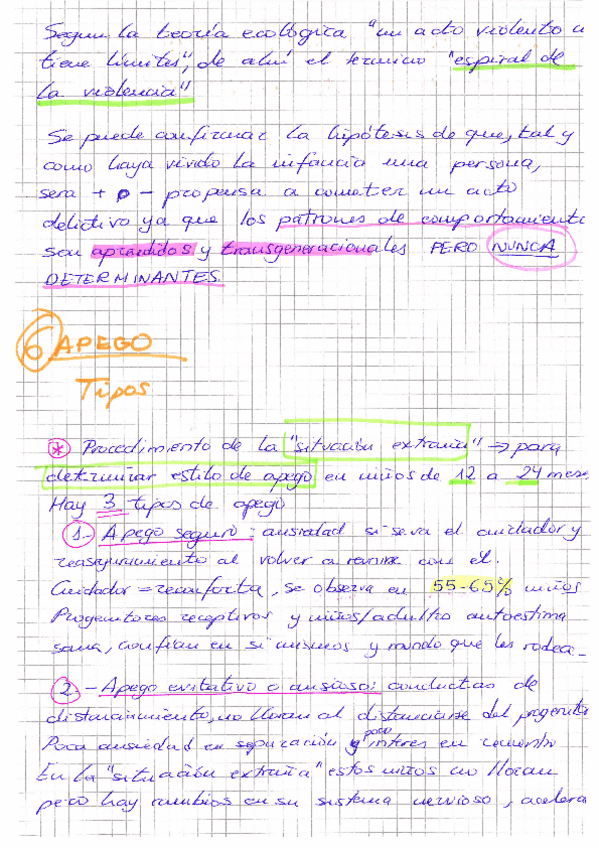 Segun la teoría ecológica "un acto violento n
tiene límites", de ahí el termino "espiral de
la violencia"
Se puede confirmar la hipótesis de que, tal y
como haya vivido la infancia una persona,
sera + o - propensa a cometer un acto
delictivo ya que los patrones de comportamiento
son aprendidos y transgeneracionales PERO NUNCA
DETERMINANTES.
6 APEGO
Tipos
* Procedimiento de la "situación extraña" → para
determinar estilo de apego en niños de 12 a 24 mese
Hay 3 tipos de apego
1.- Apego seguro: ansiedad si se va el cuidador y
reaseguramiento al volver a reunirse con el.
Cuidador = reconforta, se observa en 55-65% niños
Progenitores receptivos y niños/adultos autoestima
sana, confian en si mismos y mundo que les rodea-
2.- Apego evitativo o ansioso: conductas de
distanciamiento, no lloran al distanciarse del progenitor
Poca ansiedad en separación y poco interes en reencuentro
En la "situación extraña" estos niños no lloran
pero hay cambios en su sistema nervioso, acelera